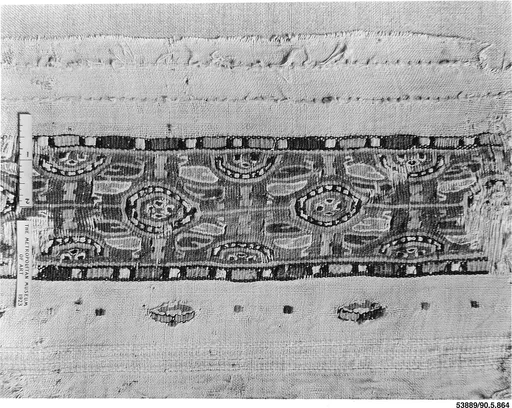 THE METROPOLITAN MUSEUM
OF ART
1923
53889/90.5.864